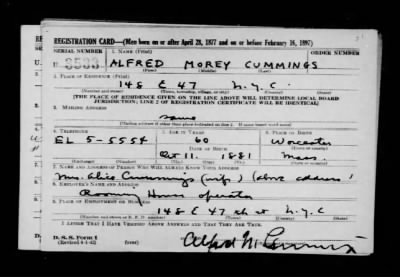 REGISTRATION CARD—(Men born on or after April 28, 1877 and on or before February 16, 1897)
SERIAL NUMBER 1. NAME (Print) ORDER NUMBER
U. ALFRED MOREY CUMMINGS
(First) (Middle) (Last)
2. PLACE OF RESIDENCE (Print)
148 E 47 N.Y.C
(Number and street) (Town, township, village, or city) (County) (State)
[THE PLACE OF RESIDENCE GIVEN ON THE LINE ABOVE WILL DETERMINE LOCAL BOARD
JURISDICTION; LINE 2 OF REGISTRATION CERTIFICATE WILL BE IDENTICAL]
3. MAILING ADDRESS
same
[Mailing address if other than place indicated on line 2. If same insert word same]
4. TELEPHONE 5. AGE IN YEARS 6. PLACE OF BIRTH
EL 5-5554 60 Worcester
DATE OF BIRTH (Town or county)
Oct 11. 1881 Mass.
(Exchange) (Number) (Mo.) (Day) (Yr.) (State or country)
7. NAME AND ADDRESS OF PERSON WHO WILL ALWAYS KNOW YOUR ADDRESS
Mrs. Alice Cummings (wife) (above address)
8. EMPLOYER'S NAME AND ADDRESS
Rooming House operator
9. PLACE OF EMPLOYMENT OR BUSINESS
148 E 47 N.Y.C
(Number and street or R. F. D. number) (Town) (County) (State)
I AFFIRM THAT I HAVE VERIFIED ABOVE ANSWERS AND THAT THEY ARE TRUE.
D. S. S. Form 1
(Revised 4-1-42)